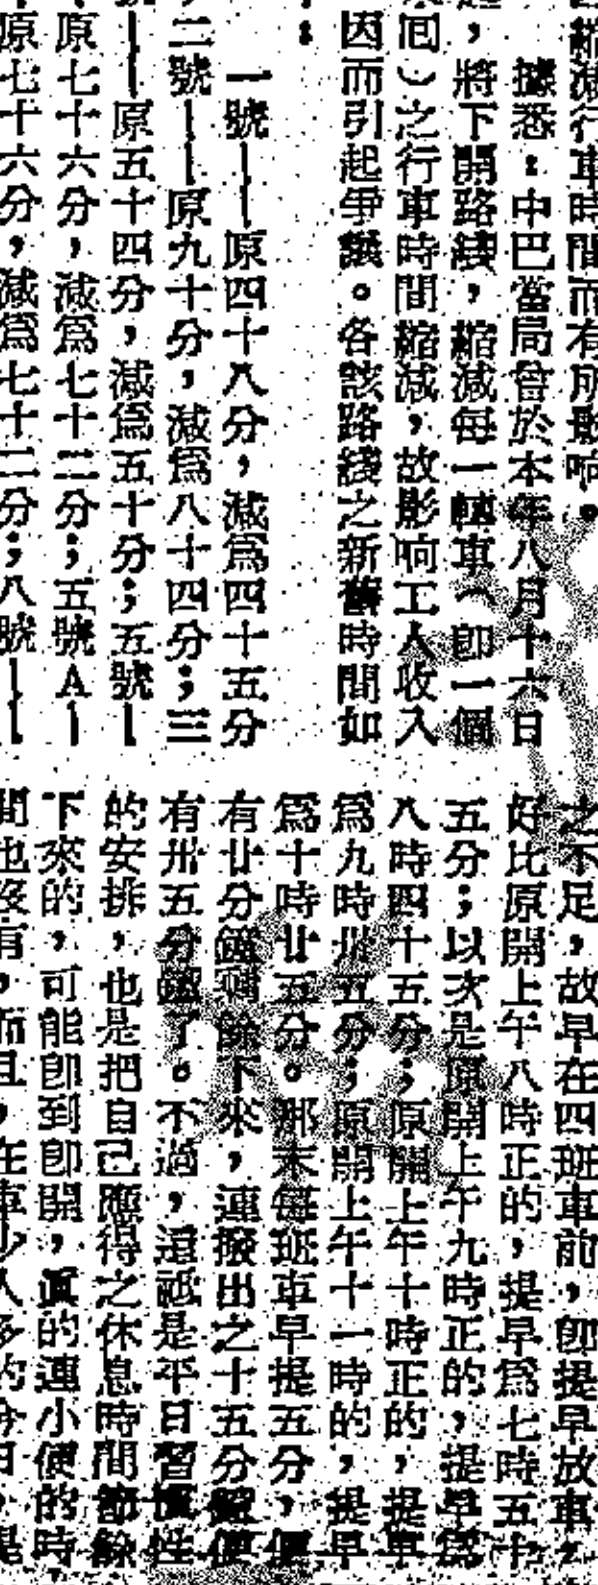 縮減行車時間而有所影响。
據悉：中巴當局曾於本年八月十六日
，將下開路綫，縮減每一輛車（卽一個
囘）之行車時間縮減，故影响工人收入
因而引起爭議。各該路綫之新舊時間如
：
一號——原四十八分，減爲四十五分
二號——原九十分，減爲八十四分；三
——原五十四分，減爲五十分；五號—
原七十六分，減爲七十二分；五號A—
原七十六分，減爲七十二分；八號——
之不足，故早在四班車前，卽提早放車，
好比原開上午八時正的，提早爲七時五十
五分；以次是原開上午九時正的，提早爲
八時四十五分；原開上午十時正的，提早
爲九時卅五分；原開上午十一時的，提早
爲十時廿五分。那末每班車早提五分，便
有廿分鐘積餘下來，連撥出之十五分鐘便
有卅五分鐘了。不過，這祗是平日習慣性
的安排，也是把自己應得之休息時間節餘
下來的，可能卽到卽開，眞的連小便的時
間也沒有，而且，在車少人多的今日，是